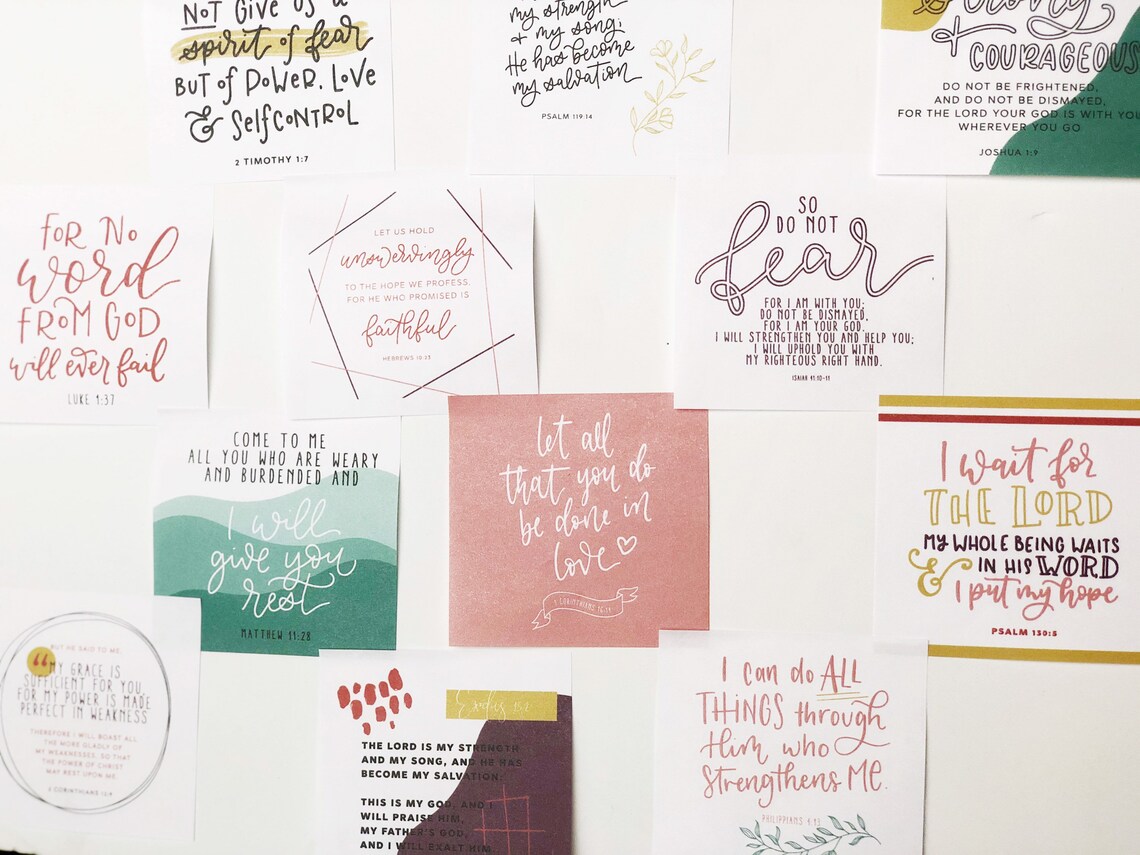 NOT GIVE US A
spirit of fear
BUT of POWER, LOVE
& SelfCONTROL
2 TIMOTHY 1:7
my strength
+ my song;
He has become
my salvation
PSALM 119:14
Strong
+ COURAGEOUS
DO NOT BE FRIGHTENED,
AND DO NOT BE DISMAYED,
FOR THE LORD YOUR GOD IS WITH YOU
WHEREVER YOU GO
JOSHUA 1:9
FOR NO
word
FROM GOD
will ever fail
LUKE 1:37
LET US HOLD
unswervingly
TO THE HOPE WE PROFESS,
FOR HE WHO PROMISED IS
faithful
HEBREWS 10:23
SO
DO NOT
fear
FOR I AM WITH YOU;
DO NOT BE DISMAYED,
FOR I AM YOUR GOD.
I WILL STRENGTHEN YOU AND HELP YOU;
I WILL UPHOLD YOU WITH
MY RIGHTEOUS RIGHT HAND.
ISAIAH 41:10-11
COME TO ME
ALL YOU WHO ARE WEARY
AND BURDENDED AND
I will
give you
rest
MATTHEW 11:28
let all
that you do
be done in
love
1 CORINTHIANS 16:14
I wait for
THE LORD
MY WHOLE BEING WAITS
& IN HIS WORD
I put my hope
PSALM 130:5
BUT HE SAID TO ME,
“MY GRACE IS
SUFFICIENT FOR YOU
FOR MY POWER IS MADE
PERFECT IN WEAKNESS
THEREFORE I WILL BOAST ALL
THE MORE GLADLY OF
MY WEAKNESSES, SO THAT
THE POWER OF CHRIST
MAY REST UPON ME.
2 CORINTHIANS 12:9
Exodus 15:2
THE LORD IS MY STRENGTH
AND MY SONG, AND HE HAS
BECOME MY SALVATION;
THIS IS MY GOD, AND I
WILL PRAISE HIM,
MY FATHER'S GOD,
AND I WILL EXALT HIM
I can do ALL
THINGS through
Him who
strengthens ME.
PHILIPPIANS 4:13